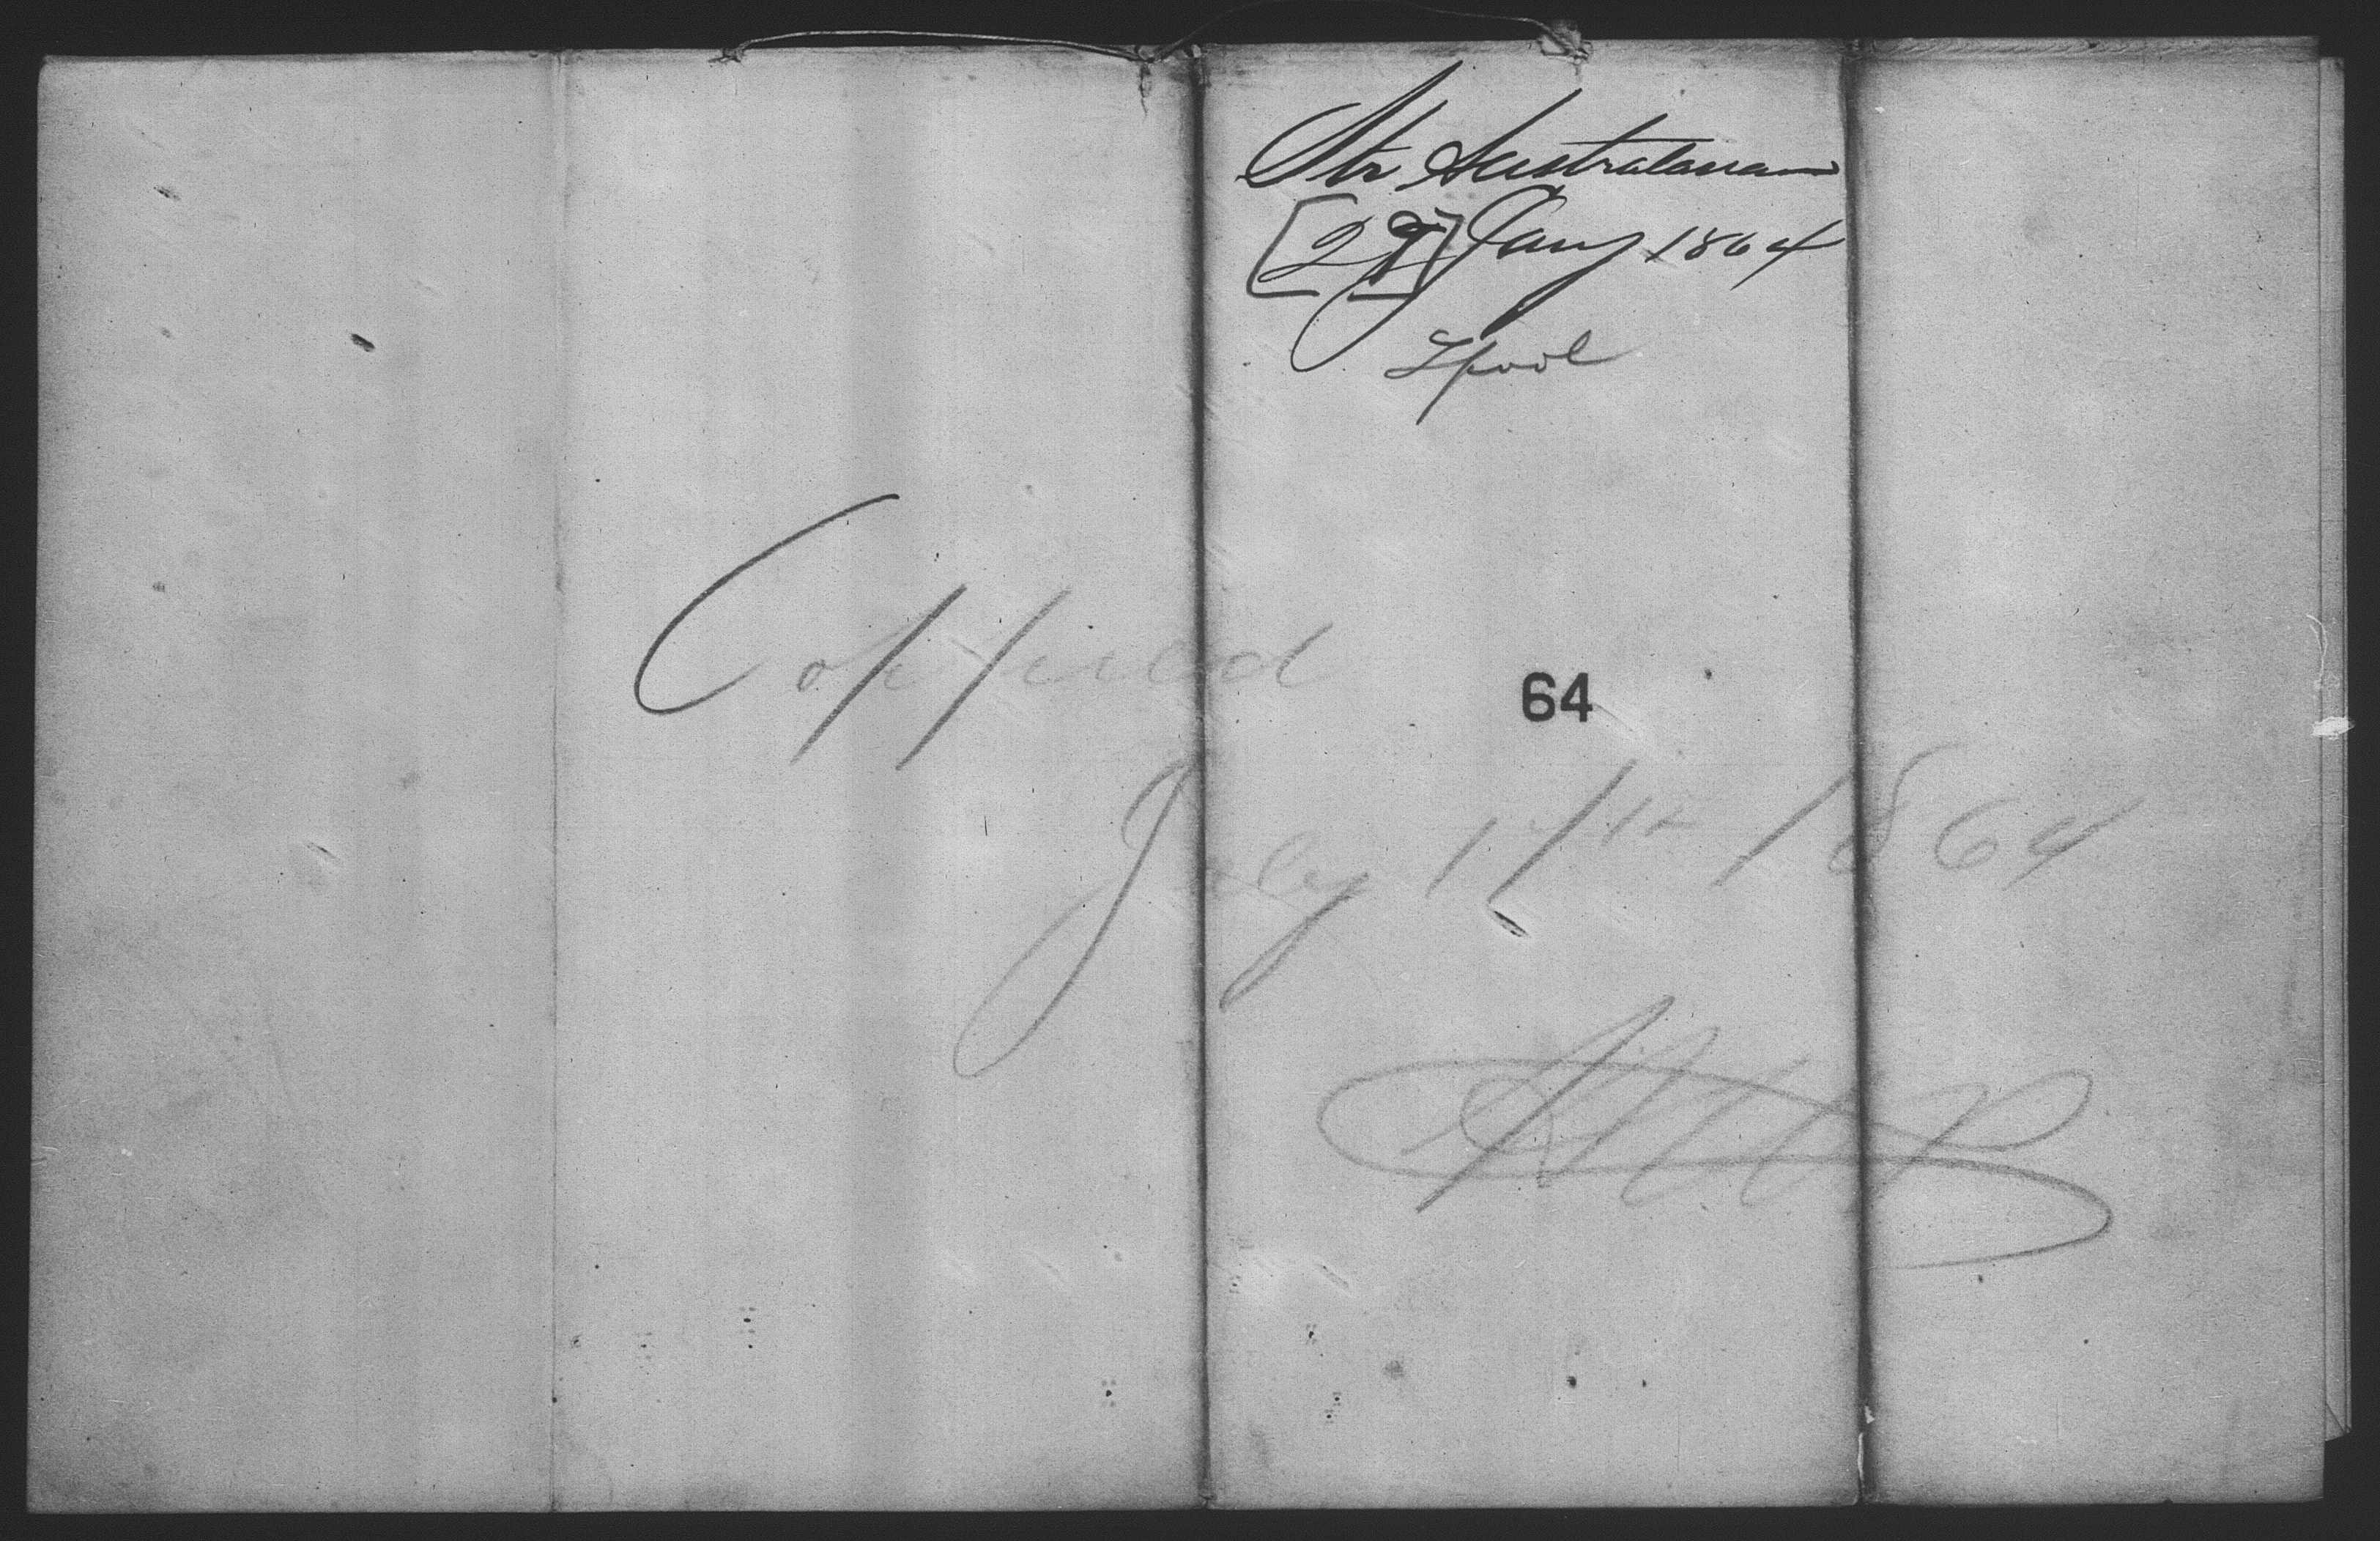 Str Australasian
Jany 1864
Lpool
Coppied
64
July 17th 1864